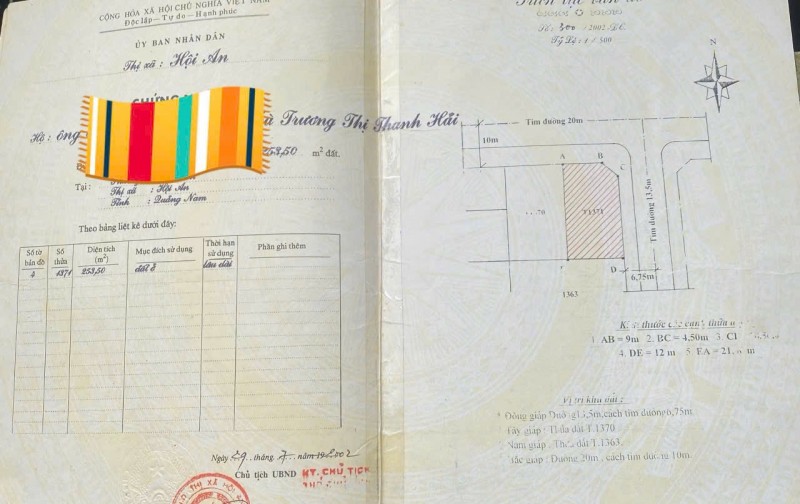 CỘNG HÒA XÃ HỘI CHỦ NGHĨA VIỆT NAM
Độc lập - Tự do - Hạnh phúc
ỦY BAN NHÂN DÂN
Thị xã : Hội An
CHỨNG
Hộ: ông
Trương Thị Thanh Hải
253,50 m² đất.
Tại :
Thị xã : Hội An
Tỉnh : Quảng Nam
Theo bảng liệt kê dưới đây:
Số tờ bản đồ
Số thửa
Diện tích (m²)
Mục đích sử dụng
Thời hạn sử dụng
Phần ghi thêm
4 1371 253,50 đất ở lâu dài
Ngày 29 tháng 7 năm 2002
Chủ tịch UBND
KT. CHỦ TỊCH
Số: 300 -2002.ĐC
Tỷ Lệ: 1 / 500
N
Tim đường 20m
10m
A B C
70
T1371
Tim đường 13,5m
D
6,75m
1363
thước các cạnh thửa
1. AB = 9m 2. BC = 4,50m 3.
4. DE = 12 m 5. EA = 21. m
Vị trí khu đất :
* Đông giáp 5m, cách tim đường 6,75m.
Tây giáp : Thửa đất T.1370
Nam giáp : Thửa đất T.1363.
Bắc giáp : Đường 20m , cách tim đường 10m.